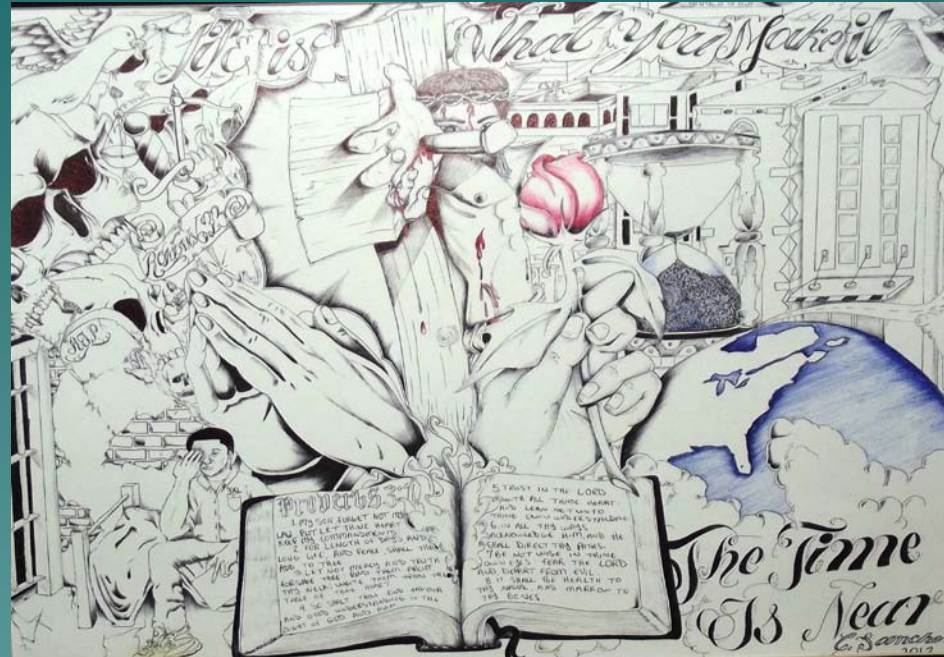 Life is What You Make it
Romans 6:23
Proverbs 3:1
1. MY SON FORGET NOT MY
LAW, BUT LET THINE HEART
KEEP MY COMMANDMENTS
2 FOR LENGTH OF DAYS AND
LONG LIFE, AND PEACE, SHALL THEY
ADD TO THEE
3 LET NOT MERCY AND TRUTH
FORSAKE THEE BIND THEM ABOUT
THY NECK, WRITE THEM UPON THE
TABLE OF THINE HEART
4. SO SHALT THOU FIND FAVOUR
AND GOOD UNDERSTANDING IN THE
SIGHT OF GOD AND MAN
5 TRUST IN THE LORD
WITH ALL THINE HEART
AND LEAN NOT UNTO
THINE OWN UNDERSTANDING
6. IN ALL THY WAYS
ACKNOWLEDGE HIM, AND HE
SHALL DIRECT THY PATHS.
7 BE NOT WISE IN THINE
OWN EYES FEAR THE LORD
AND DEPART FROM EVIL
8 IT SHALL BE HEALTH TO
THY NAVEL, AND MARROW TO
THY BONES
The Time
Is Near
C. Sanchez
2012